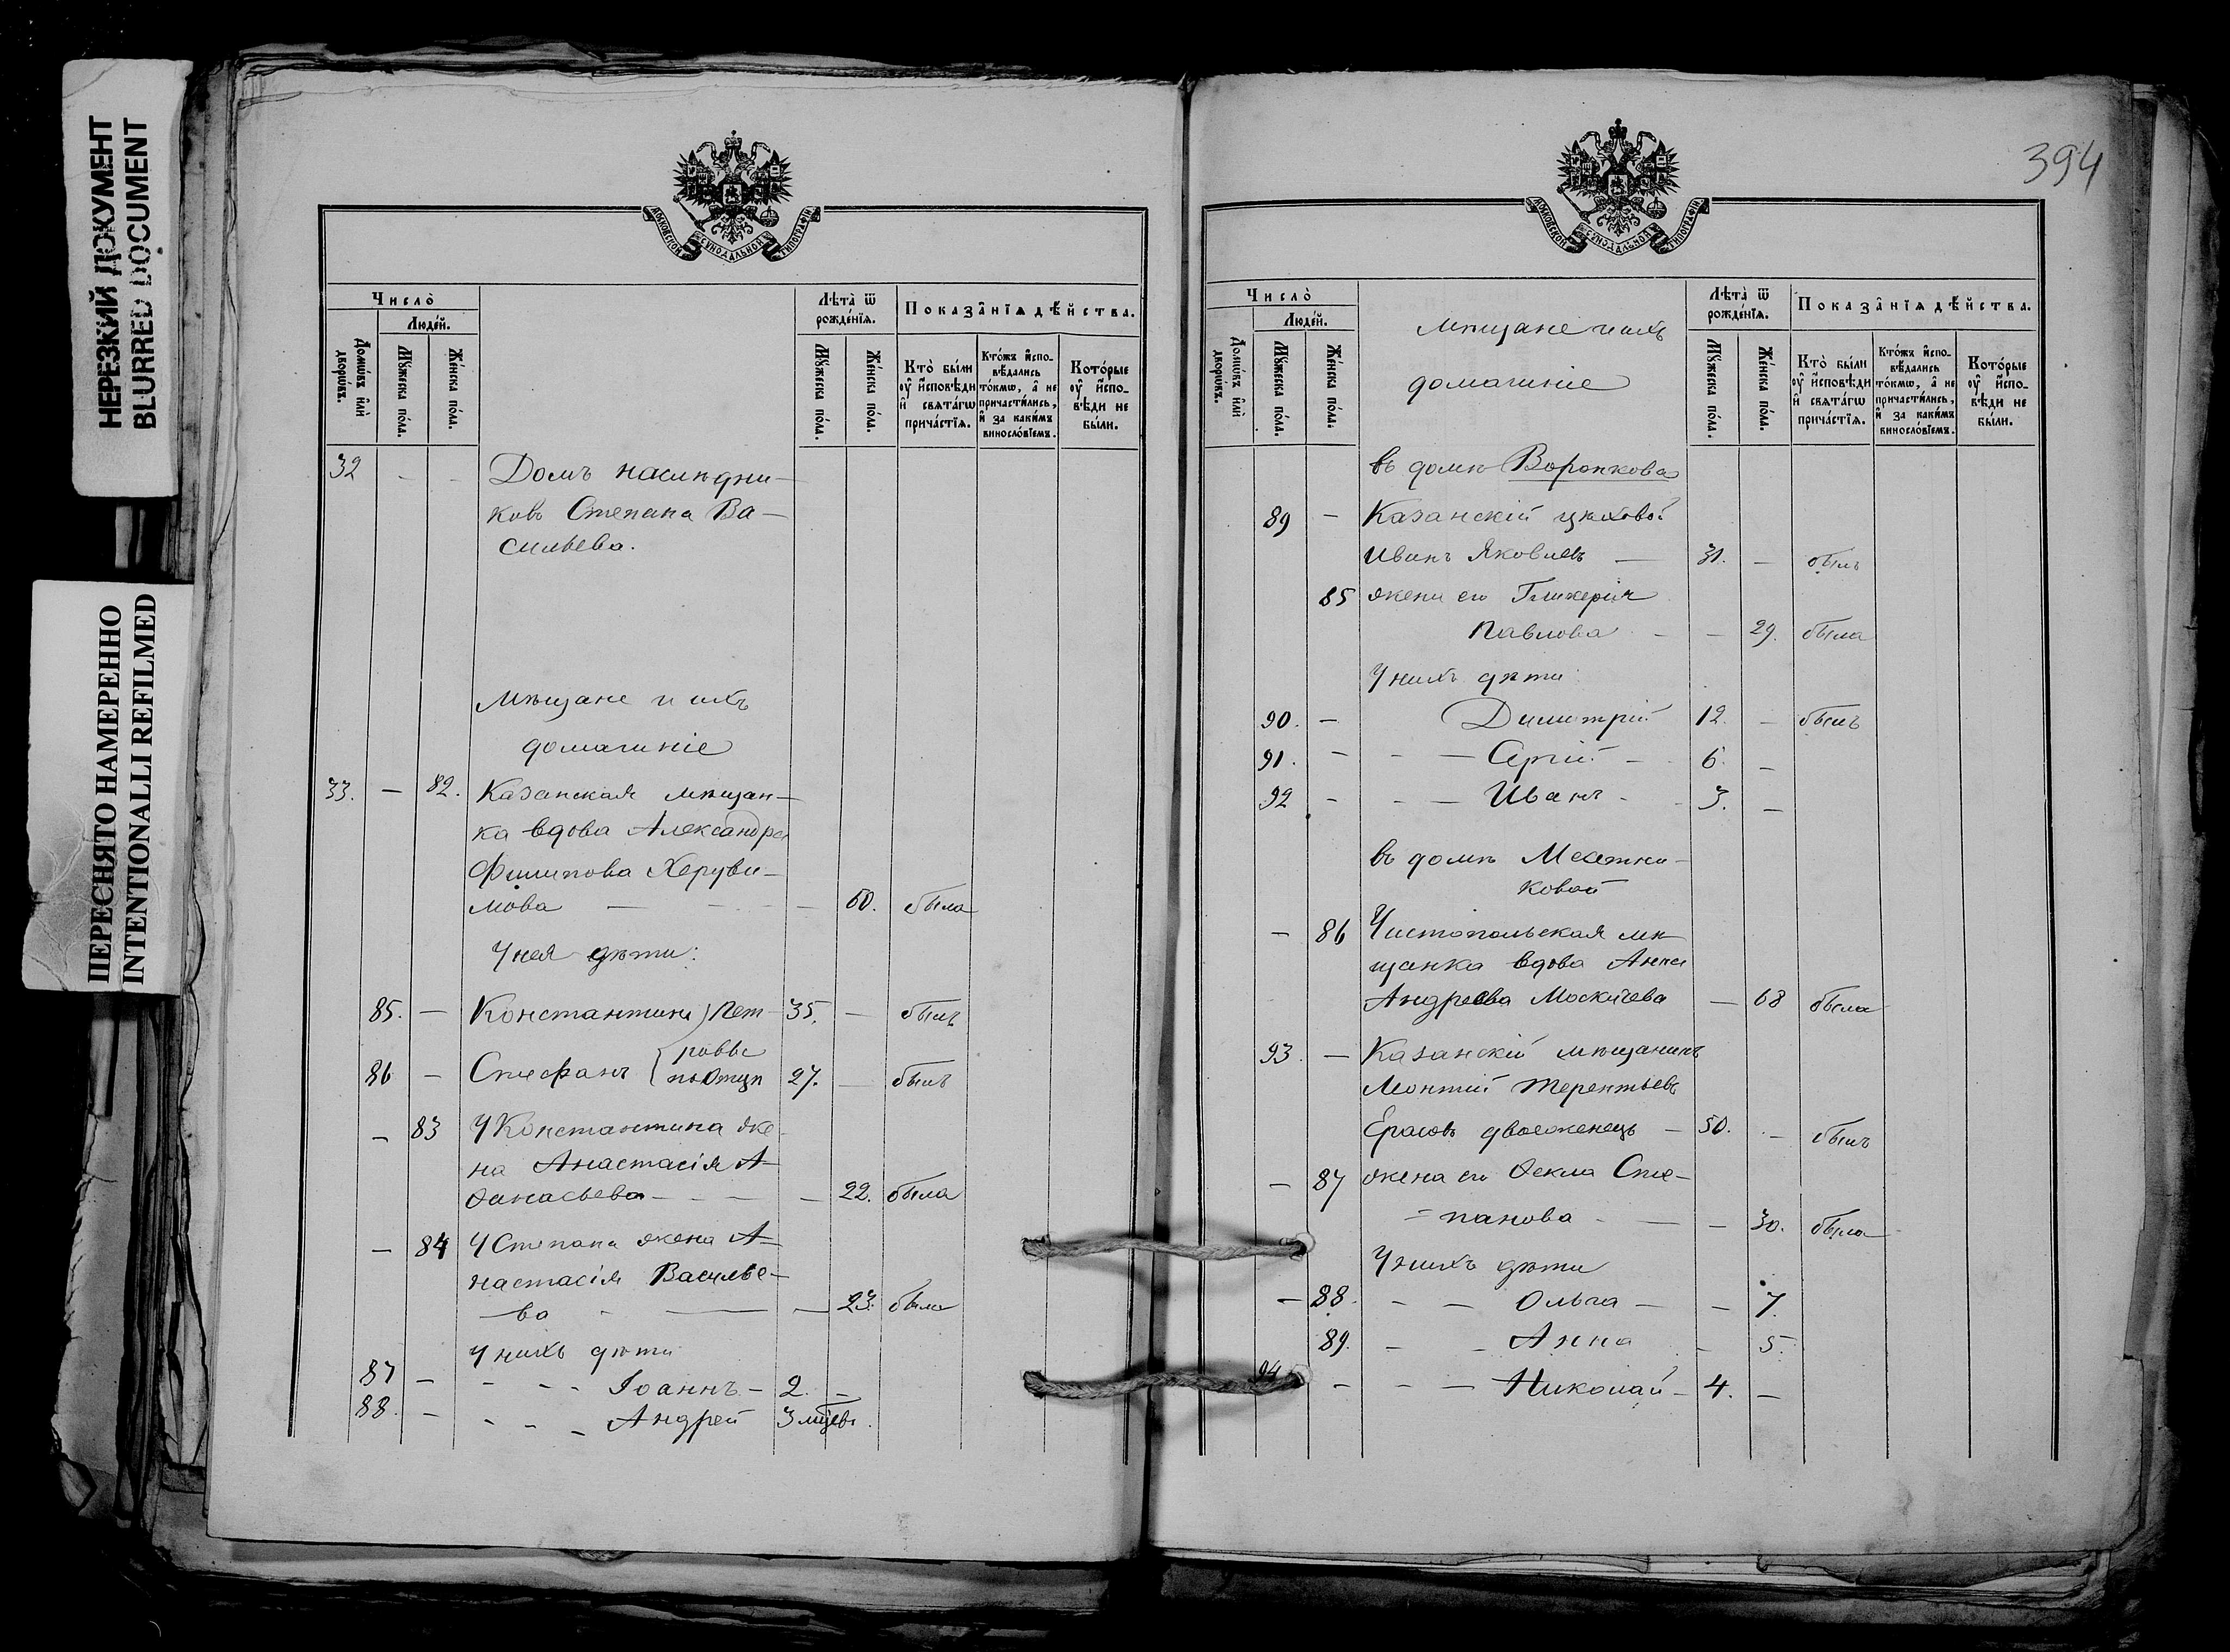 НЕРЕЗКИЙ ДОКУМЕНТ
BLURRED DOCUMENT
ПЕРЕСНЯТО НАМЕРЕННО
INTENTIONALLI REFILMED
МОСКОВСКОЙ СУНОДАЛЬНОЙ ТИПОГРАФІИ
Число̀
Людей.
Домѡвъ или дворѡвъ.
Мꙋжеска пола.
Женска пола.
Лѣта̀ ѿ рожденїѧ.
Мꙋжеска пола.
Женска пола.
Показанїѧ дѣйства.
Кто̀ были оу҆ исповѣди и свѧтагѡ причастїѧ.
Ктожъ исповѣдались токмѡ, а не причастились, и за какимъ винословїемъ.
Которые оу҆ исповѣди не были.
32 - - Домъ наслѣдни-
ковъ Степана Ва-
сильева.
Мѣщане и ихъ
домашніе
33. - 82. Казанская мѣщан-
ка вдова Александра
Филипова Херуви-
мова - 60. была
У нея дѣти:
85. - Константинъ Пет- 35. - былъ
ровы
86 - Стефанъ по отцѣ 27. - былъ
- 83 У Константина же-
на Анастасія А-
ѳанасьева - 22. была
- 84 У Степана жена А-
настасія Василье-
ва - 23. была
У нихъ дѣти
87 - Іоаннъ - 2. -
88. - Андрей 3 мцевъ.
394
МОСКОВСКОЙ СУНОДАЛЬНОЙ ТИПОГРАФІИ
Число̀
Людей.
Домѡвъ или дворѡвъ.
Мꙋжеска пола.
Женска пола.
Мѣщане и ихъ
домашніе
Лѣта̀ ѿ рожденїѧ.
Мꙋжеска пола.
Женска пола.
Показанїѧ дѣйства.
Кто̀ были оу҆ исповѣди и свѧтагѡ причастїѧ.
Ктожъ исповѣдались токмѡ, а не причастились, и за какимъ винословїемъ.
Которые оу҆ исповѣди не были.
въ домѣ Воропкова
89 - Казанскій цѣховой
Иванъ Яковлевъ - 31. - былъ
85 жена его Гликерія
Павлова - - 29. была
У нихъ дѣти
90. - Димитрій 12. - былъ
91. - Сергій - 6. -
92 - Иванъ - 3. -
въ домѣ
ковой
- 86 Чистопольская мѣ-
щанка вдова Анна
Андреева Москичева - 68 была
93. - Казанскій мѣщанинъ
Леонтій Терентьевъ
Ерасовъ двоеженецъ - 50. - былъ
- 87 жена его Ѳекла Сте-
панова - - 30. была
У нихъ дѣти
- 88. - Ольга - - 7.
89. - Анна - 5.
94 - Николай - 4. -